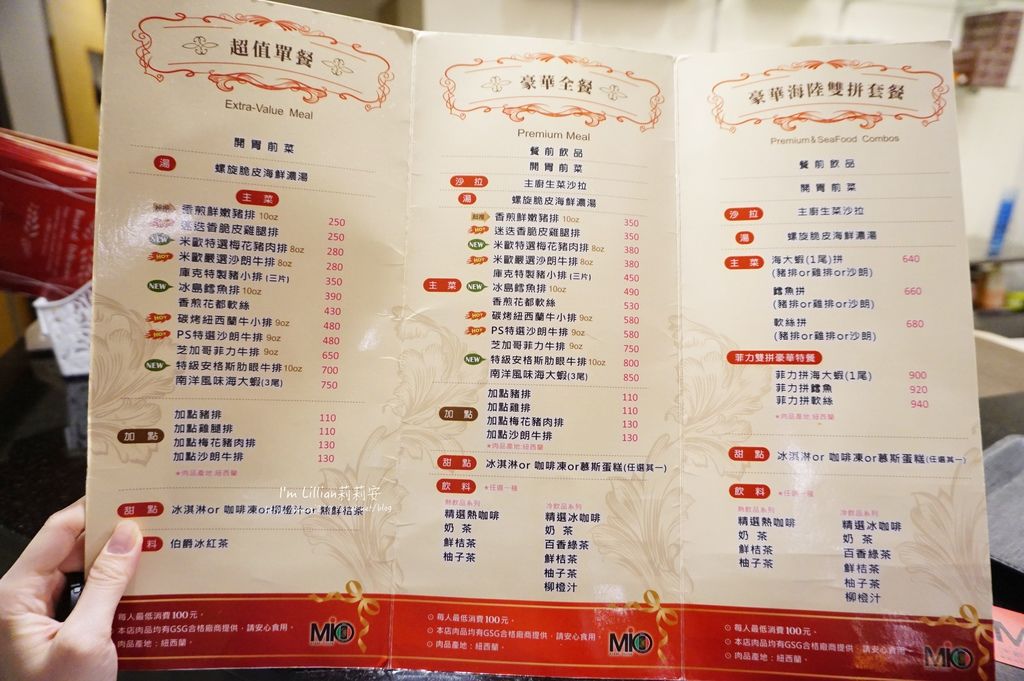 超值單餐
Extra-Value Meal
開胃前菜
湯 螺旋脆皮海鮮濃湯
主菜
香煎鮮嫩豬排 10oz 250
迷迭香脆皮雞腿排 250
NEW 米歐特選梅花豬肉排 8oz 280
HOT 米歐嚴選沙朗牛排 8oz 280
庫克特製豬小排(三片) 350
NEW 冰島鱈魚排 10oz 390
香煎花都軟絲 430
HOT 碳烤紐西蘭牛小排 9oz 480
HOT PS特選沙朗牛排 9oz 480
芝加哥菲力牛排 9oz 650
NEW 特級安格斯肋眼牛排 10oz 700
南洋風味海大蝦(3尾) 750
加點
加點豬排 110
加點雞腿排 110
加點梅花豬肉排 130
加點沙朗牛排 130
★肉品產地:紐西蘭
I'm Lillian莉莉安
甜點 冰淇淋or 咖啡凍or柳橙汁or 熱鮮桔茶
料 伯爵冰紅茶
每人最低消費100元。
本店肉品均有GSG合格廠商提供，請安心食用。
肉品產地：紐西蘭。
MiCO
豪華全餐
Premium Meal
餐前飲品
開胃前菜
沙拉 主廚生菜沙拉
湯 螺旋脆皮海鮮濃湯
主菜
香煎鮮嫩豬排 10oz 350
HOT 迷迭香脆皮雞腿排 350
NEW 米歐特選梅花豬肉排 8oz 380
HOT 米歐嚴選沙朗牛排 8oz 380
庫克特製豬小排(三片) 450
NEW 冰島鱈魚排 10oz 490
香煎花都軟絲 530
HOT 碳烤紐西蘭牛小排 9oz 580
HOT PS特選沙朗牛排 9oz 580
芝加哥菲力牛排 9oz 750
NEW 特級安格斯肋眼牛排 10oz 800
南洋風味海大蝦(3尾) 850
加點
加點豬排 110
加點雞排 110
加點梅花豬肉排 130
加點沙朗牛排 130
★肉品產地:紐西蘭
甜點 冰淇淋or 咖啡凍or慕斯蛋糕(任選其一)
飲料 ★任選一種
熱飲品系列
精選熱咖啡
奶 茶
鮮桔茶
柚子茶
冷飲品系列
精選冰咖啡
奶 茶
百香綠茶
鮮桔茶
柚子茶
柳橙汁
每人最低消費100元。
本店肉品均有GSG合格廠商提供，請安心食用。
肉品產地：紐西蘭。
MiCO
豪華海陸雙拼套餐
Premium&SeaFood Combos
餐前飲品
開胃前菜
沙拉 主廚生菜沙拉
湯 螺旋脆皮海鮮濃湯
主菜 海大蝦(1尾)拼 640
(豬排or雞排or沙朗)
鱈魚拼 660
(豬排or雞排or沙朗)
軟絲拼 680
(豬排or雞排or沙朗)
菲力雙拼豪華特餐
菲力拼海大蝦(1尾) 900
菲力拼鱈魚 920
菲力拼軟絲 940
★肉品產地:紐西蘭
甜點 冰淇淋or 咖啡凍or慕斯蛋糕(任選其一)
飲料 ★任選一種
熱飲品系列
精選熱咖啡
奶 茶
鮮桔茶
柚子茶
冷飲品系列
精選冰咖啡
奶 茶
百香綠茶
鮮桔茶
柚子茶
柳橙汁
每人最低消費100元。
本店肉品均有GSG合格廠商提供，請安心食用。
肉品產地：紐西蘭。
MiCO